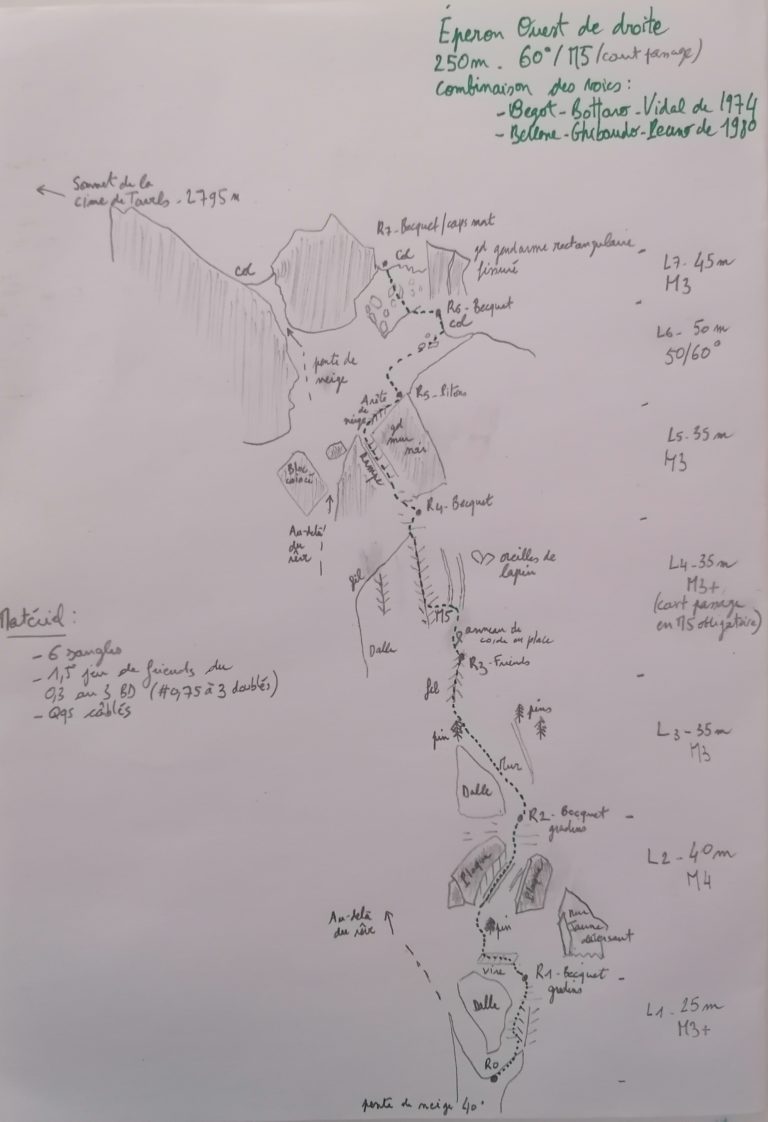 Éperon Ouest de droite
250m. 60°/M5 (court passage)
combinaison des voies:
- Begot-Bottaro-Vidal de 1974
- Bellone-Ghibaudo-Peano de 1980
Sommet de la
cime de Tavels - 2795 m
R7-Becquet/caps mat
gd gendarme rectangulaire
fissuré
col
Col
L7- 45m
M3
R6-Becquet
col
L6- 50m
50/60°
pente de
neige
Arête
de
neige
R5-Pitons
gd
mur
noir
Rampe
L5-35m
M3
Bloc
coincé
R4-Becquet
Au-delà
du
rêve
fil
oreilles de
lapin
L4-35m
M3+
(court passage
en M5 obligatoire)
M5
Dalle
anneau de
corde en place
R3-Friends
fil
Matériel:
- 6 sangles
- 1,5 jeu de friends du
0,3 au 3 BD (#0,75 à 3 doublés)
- Qqs câblés
pins
pin
L3-35m
M3
Mur
Dalle
R2-Becquet
gradins
L2-40m
M4
Plaque
Plaque
Au-delà
du rêve
pin
mur
Jaune
déversant
vire
R1-Becquet
gradins
Dalle
L1-25m
M3+
R0
pente de neige 40°